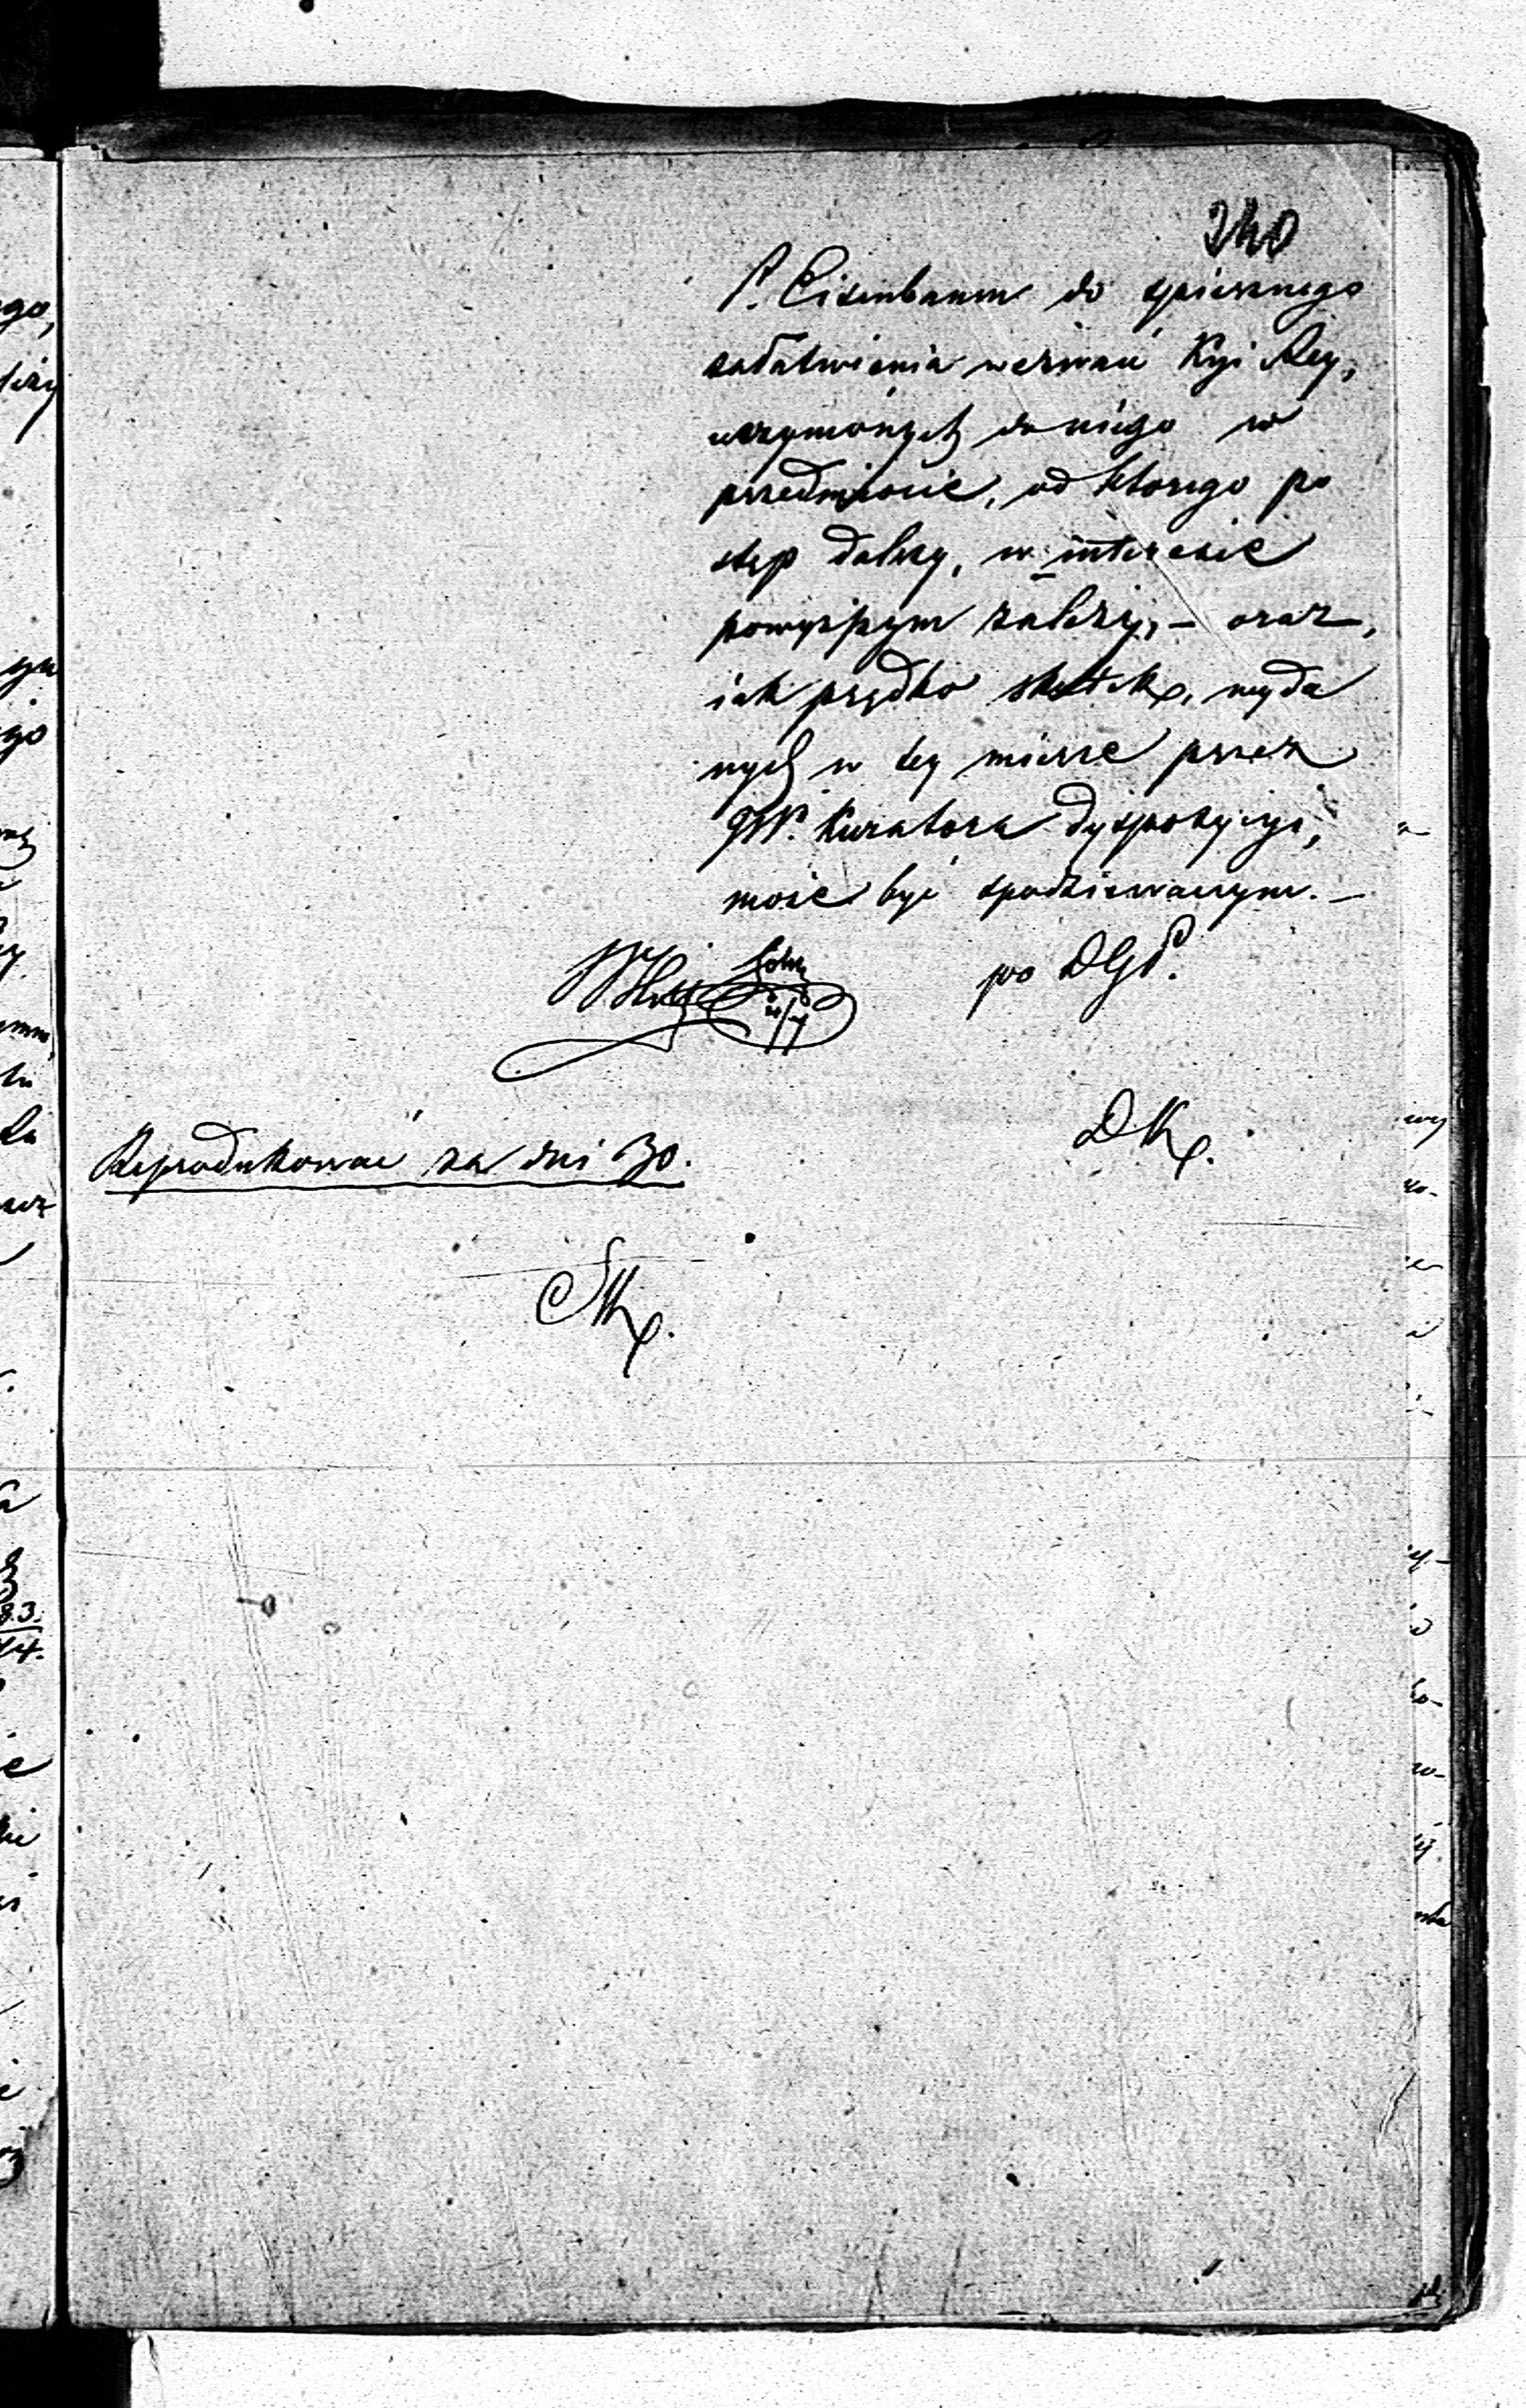 240
P. Eisenbaum do spiesznego
załatwienia wezwań Kyi Rzą,
uczynionych do niego w
przedmiocie, od ktorego po
stęp dalszy, w interesie
powyższym zależy, – oraz,
iak prędko skutek, wyda
nych w tey mierze przez
JW. Kuratora dyspozycyi,
może być spodziewanym. –
po DGP.
DK.
Reprodukować za dni 30.
SK.